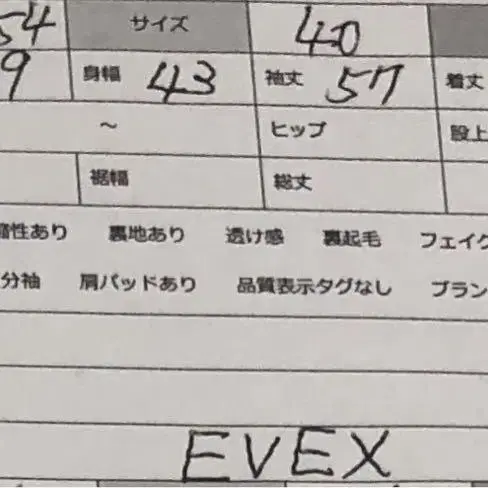 54 サイズ 40
9 身幅 43 袖丈 57 着丈
～ ヒップ 股上
裾幅 総丈
縮性あり 裏地あり 透け感 裏起毛 フェイク
分袖 肩パッドあり 品質表示タグなし ブラン
EVEX